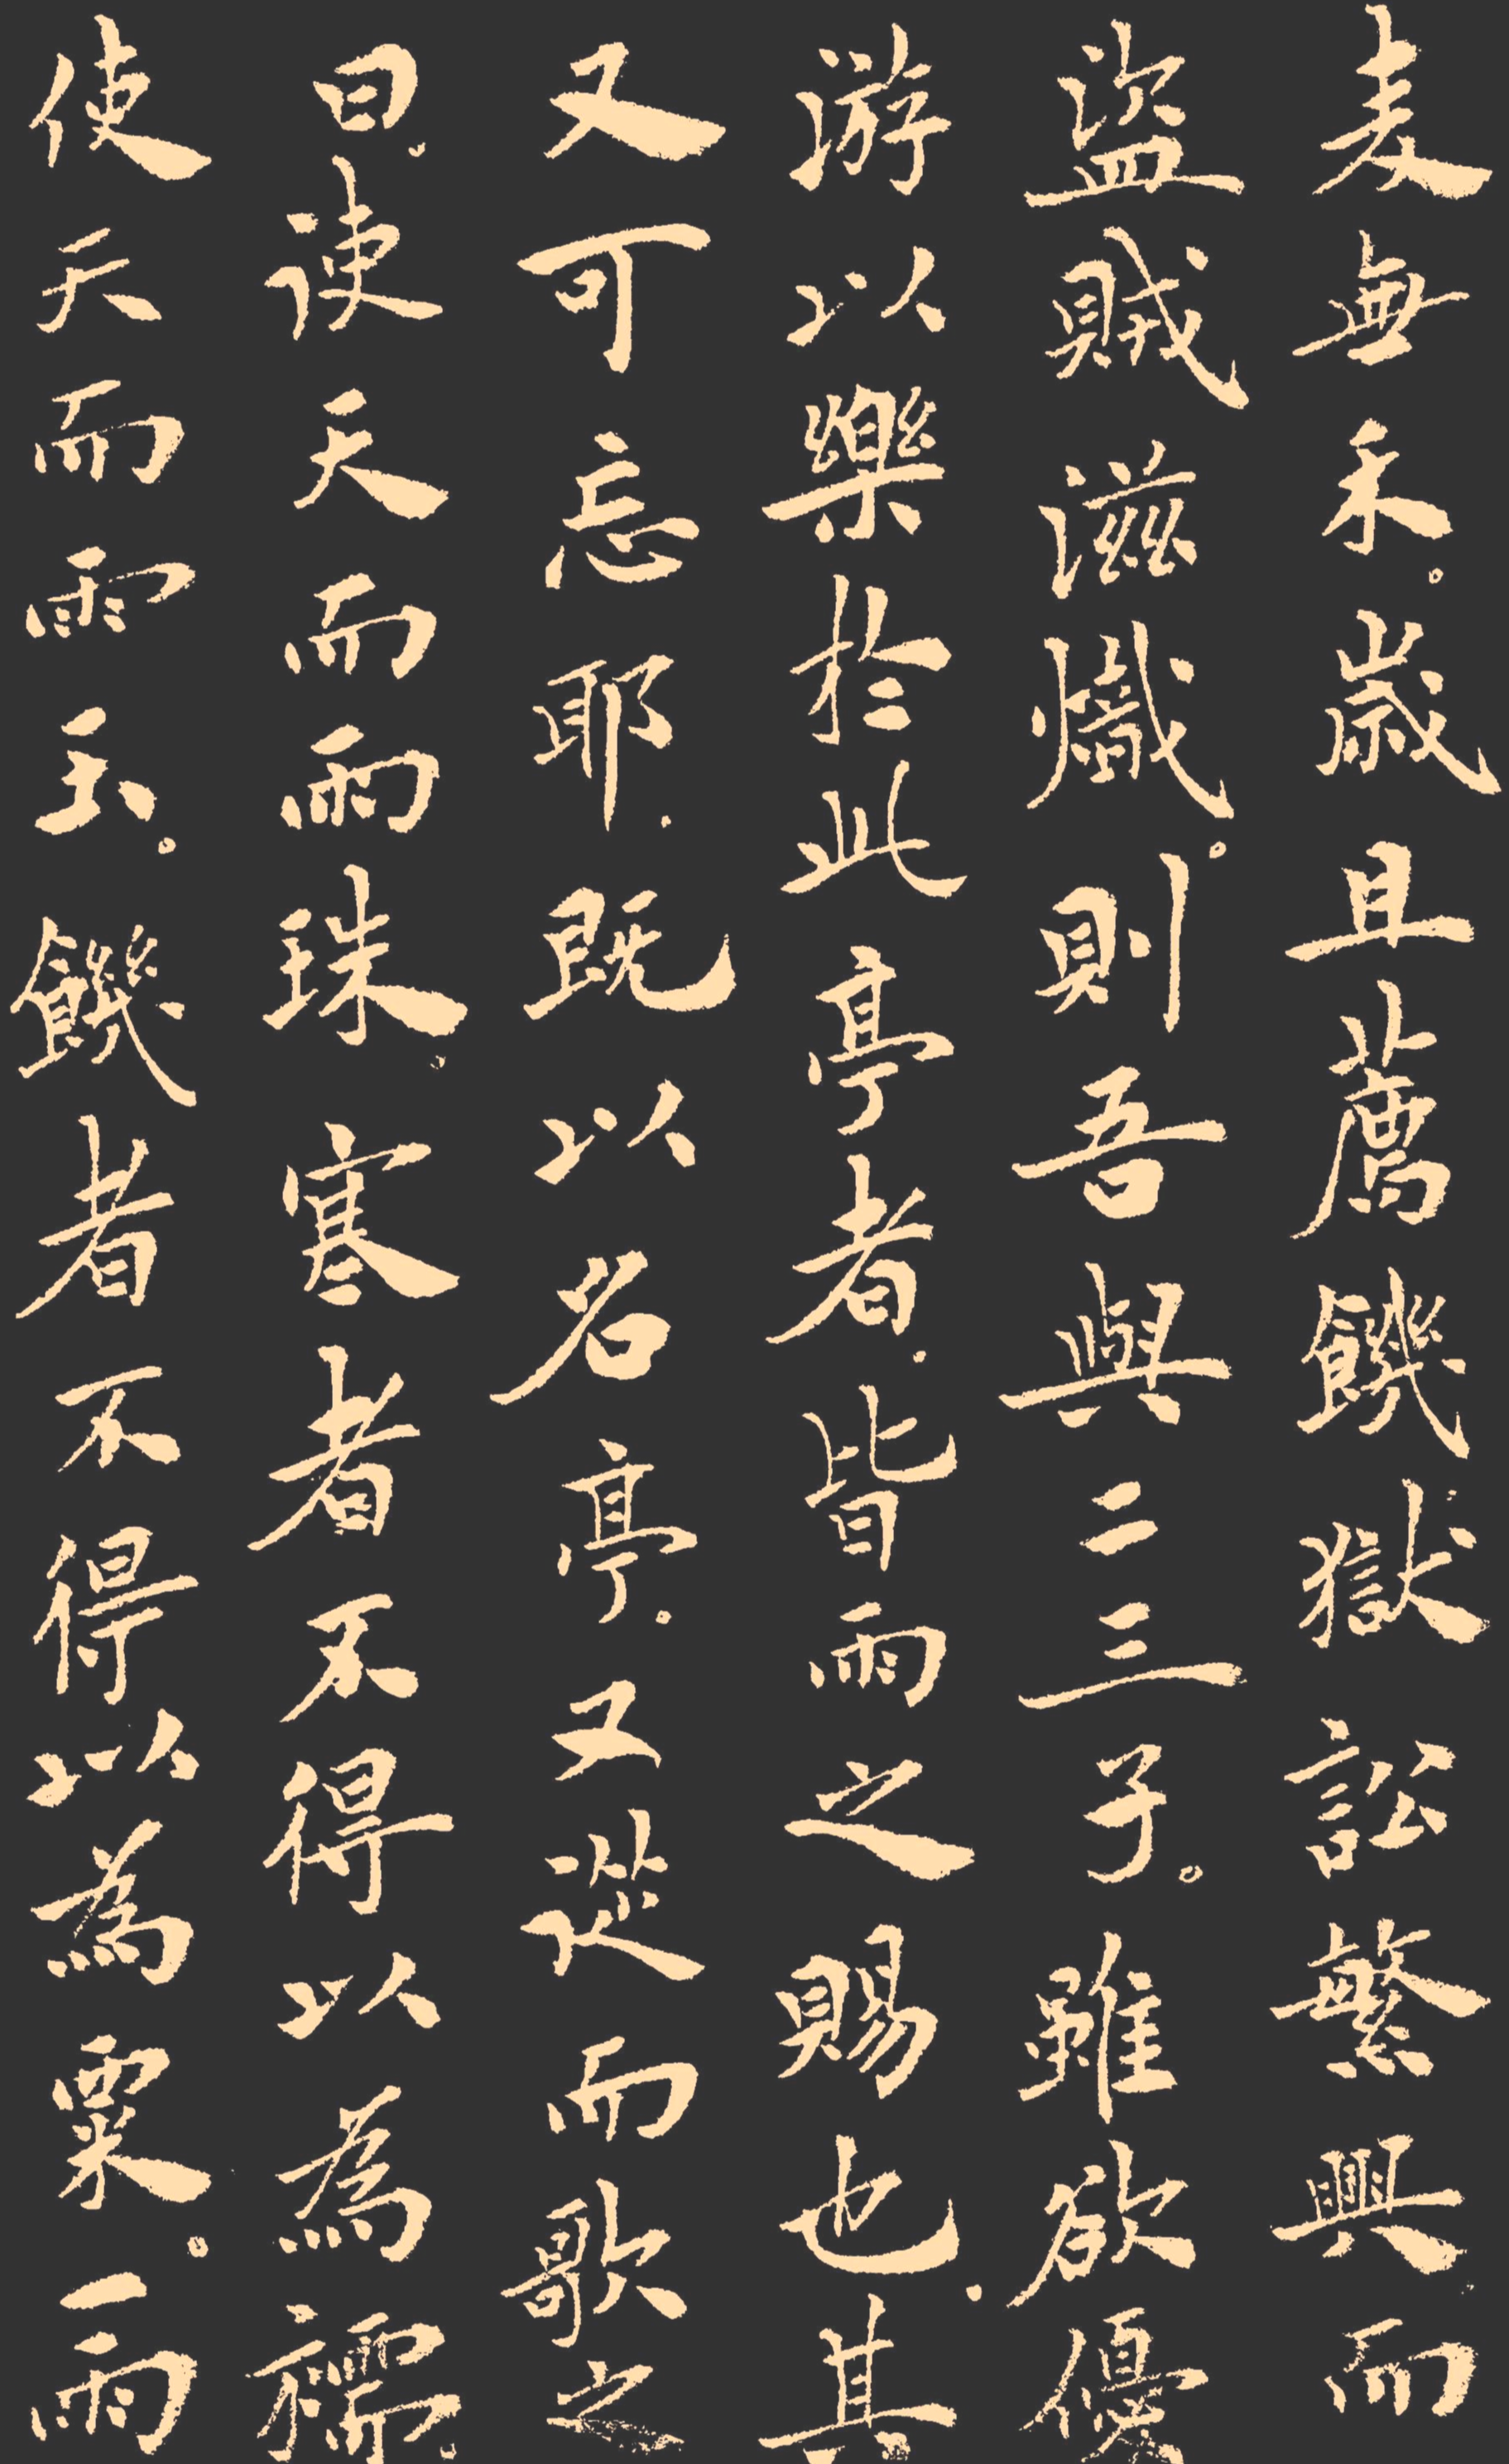 麦無禾。歲且薦饑獄訟繁興而
盜賊滋熾。則吾與二三子。雖欲優
游以樂於此亭者。皆雨之賜也。其
又可忘耶。既以名亭。又從而歌之
曰。使天而雨珠。寒者不得以為襦
使天而雨玉。饑者不得以為粟。一雨